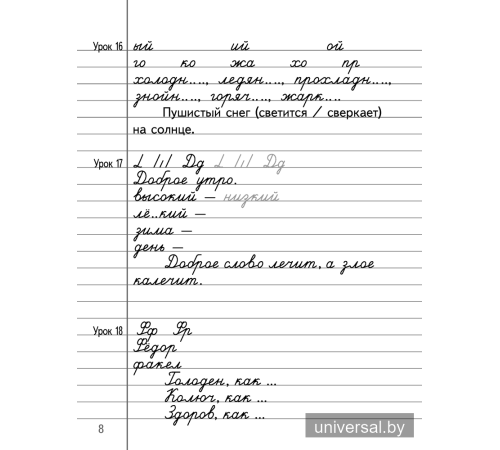 Урок 16 ый ий ой
го ко жа хо пр
холодн...., ледян...., прохладн...,
знойн...., горяч...., жарк....
Пушистый снег (светится / сверкает)
на солнце.
Урок 17 Дд Дд
Доброе утро.
высокий – низкий
лё..кий –
зима –
день –
Доброе слово лечит, а злое
калечит.
Урок 18 Фф Фр
Фёдор
факел
Голоден, как ...
Колюч, как ...
Здоров, как ...
8
universal.by